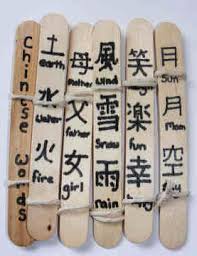 Chinese
words
土
earth
水
water
火
fire
母
mother
父
father
女
girl
風
wind
雪
snow
雨
rain
笑
楽
fun
幸
Sun
月
Moon
空